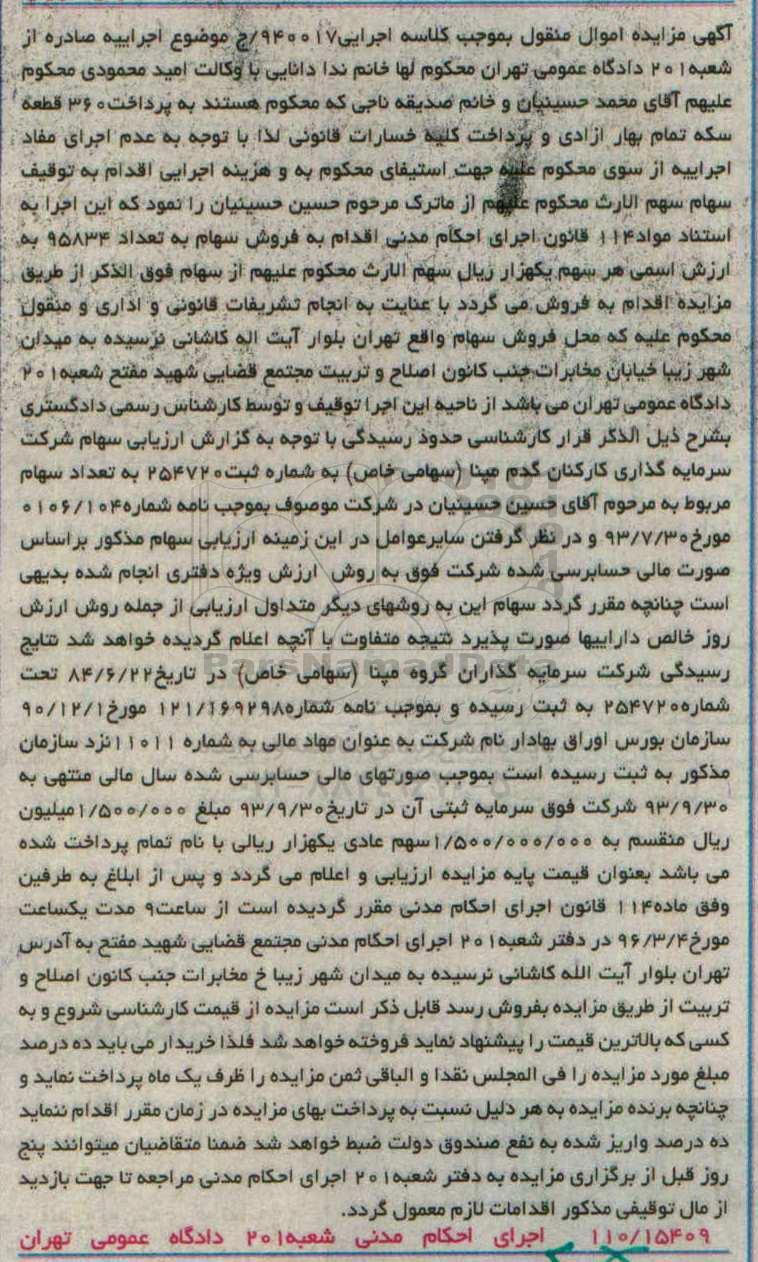 آگهی مزایده اموال منقول بموجب کلاسه اجرایی۹۴۰۰۱۷/ج موضوع اجراییه صادره از
شعبه۲۰۱ دادگاه عمومی تهران محکوم لها خانم ندا دانایی با وکالت امید محمودی محکوم
علیهم آقای محمد حسینیان و خانم صدیقه ناجی که محکوم هستند به پرداخت۳۶۰ قطعه
سکه تمام بهار ازادی و پرداخت کلیه خسارات قانونی لذا با توجه به عدم اجرای مفاد
اجراییه از سوی محکوم علیه جهت استیفای محکوم به و هزینه اجرایی اقدام به توقیف
سهام سهم الارث محکوم علیهم از ماترک مرحوم حسین حسینیان را نمود که این اجرا به
استناد مواد۱۱۴ قانون اجرای احکام مدنی اقدام به فروش سهام به تعداد ۹۵۸۳۴ به
ارزش اسمی هر سهم یکهزار ریال سهم الارث محکوم علیهم از سهام فوق الذکر از طریق
مزایده اقدام به فروش می گردد با عنایت به انجام تشریفات قانونی و اداری و منقول
محکوم علیه که محل فروش سهام واقع تهران بلوار آیت اله کاشانی نرسیده به میدان
شهر زیبا خیابان مخابرات جنب کانون اصلاح و تربیت مجتمع قضایی شهید مفتح شعبه۲۰۱
دادگاه عمومی تهران می باشد از ناحیه این اجرا توقیف و توسط کارشناس رسمی دادگستری
بشرح ذیل الذکر قرار کارشناسی حدود رسیدگی با توجه به گزارش ارزیابی سهام شرکت
سرمایه گذاری کارکنان گدم مپنا (سهامی خاص) به شماره ثبت۲۵۴۷۲۰ به تعداد سهام
مربوط به مرحوم آقای حسین حسینیان در شرکت موصوف بموجب نامه شماره۰۱۰۶/۱۰۴
مورخ۹۳/۷/۳۰ و در نظر گرفتن سایرعوامل در این زمینه ارزیابی سهام مذکور براساس
صورت مالی حسابرسی شده شرکت فوق به روش ارزش ویژه دفتری انجام شده بدیهی
است چنانچه مقرر گردد سهام این به روشهای دیگر متداول ارزیابی از جمله روش ارزش
روز خالص داراییها صورت پذیرد نتیجه متفاوت با آنچه اعلام گردیده خواهد شد نتایج
رسیدگی شرکت سرمایه گذاران گروه مپنا (سهامی خاص) در تاریخ۸۴/۶/۲۲ تحت
شماره۲۵۴۷۲۰ به ثبت رسیده و بموجب نامه شماره۱۲۱/۱۶۹۲۹۸ مورخ۹۰/۱۲/۱
سازمان بورس اوراق بهادار نام شرکت به عنوان مهاد مالی به شماره ۱۱۰۱۱نزد سازمان
مذکور به ثبت رسیده است بموجب صورتهای مالی حسابرسی شده سال مالی منتهی به
۹۳/۹/۳۰ شرکت فوق سرمایه ثبتی آن در تاریخ۹۳/۹/۳۰ مبلغ ۱/۵۰۰/۰۰۰میلیون
ریال منقسم به ۱/۵۰۰/۰۰۰/۰۰۰سهم عادی یکهزار ریالی با نام تمام پرداخت شده
می باشد بعنوان قیمت پایه مزایده ارزیابی و اعلام می گردد و پس از ابلاغ به طرفین
وفق ماده۱۱۴ قانون اجرای احکام مدنی مقرر گردیده است از ساعت۹ مدت یکساعت
مورخ۹۶/۳/۴ در دفتر شعبه۲۰۱ اجرای احکام مدنی مجتمع قضایی شهید مفتح به آدرس
تهران بلوار آیت الله کاشانی نرسیده به میدان شهر زیبا خ مخابرات جنب کانون اصلاح و
تربیت از طریق مزایده بفروش رسد قابل ذکر است مزایده از قیمت کارشناسی شروع و به
کسی که بالاترین قیمت را پیشنهاد نماید فروخته خواهد شد فلذا خریدار می باید ده درصد
مبلغ مورد مزایده را فی المجلس نقدا و الباقی ثمن مزایده را ظرف یک ماه پرداخت نماید و
چنانچه برنده مزایده به هر دلیل نسبت به پرداخت بهای مزایده در زمان مقرر اقدام ننماید
ده درصد واریز شده به نفع صندوق دولت ضبط خواهد شد ضمنا متقاضیان میتوانند پنج
روز قبل از برگزاری مزایده به دفتر شعبه۲۰۱ اجرای احکام مدنی مراجعه تا جهت بازدید
از مال توقیفی مذکور اقدامات لازم معمول گردد.
۱۱۰/۱۵۴۰۹ اجرای احکام مدنی شعبه۲۰۱ دادگاه عمومی تهران